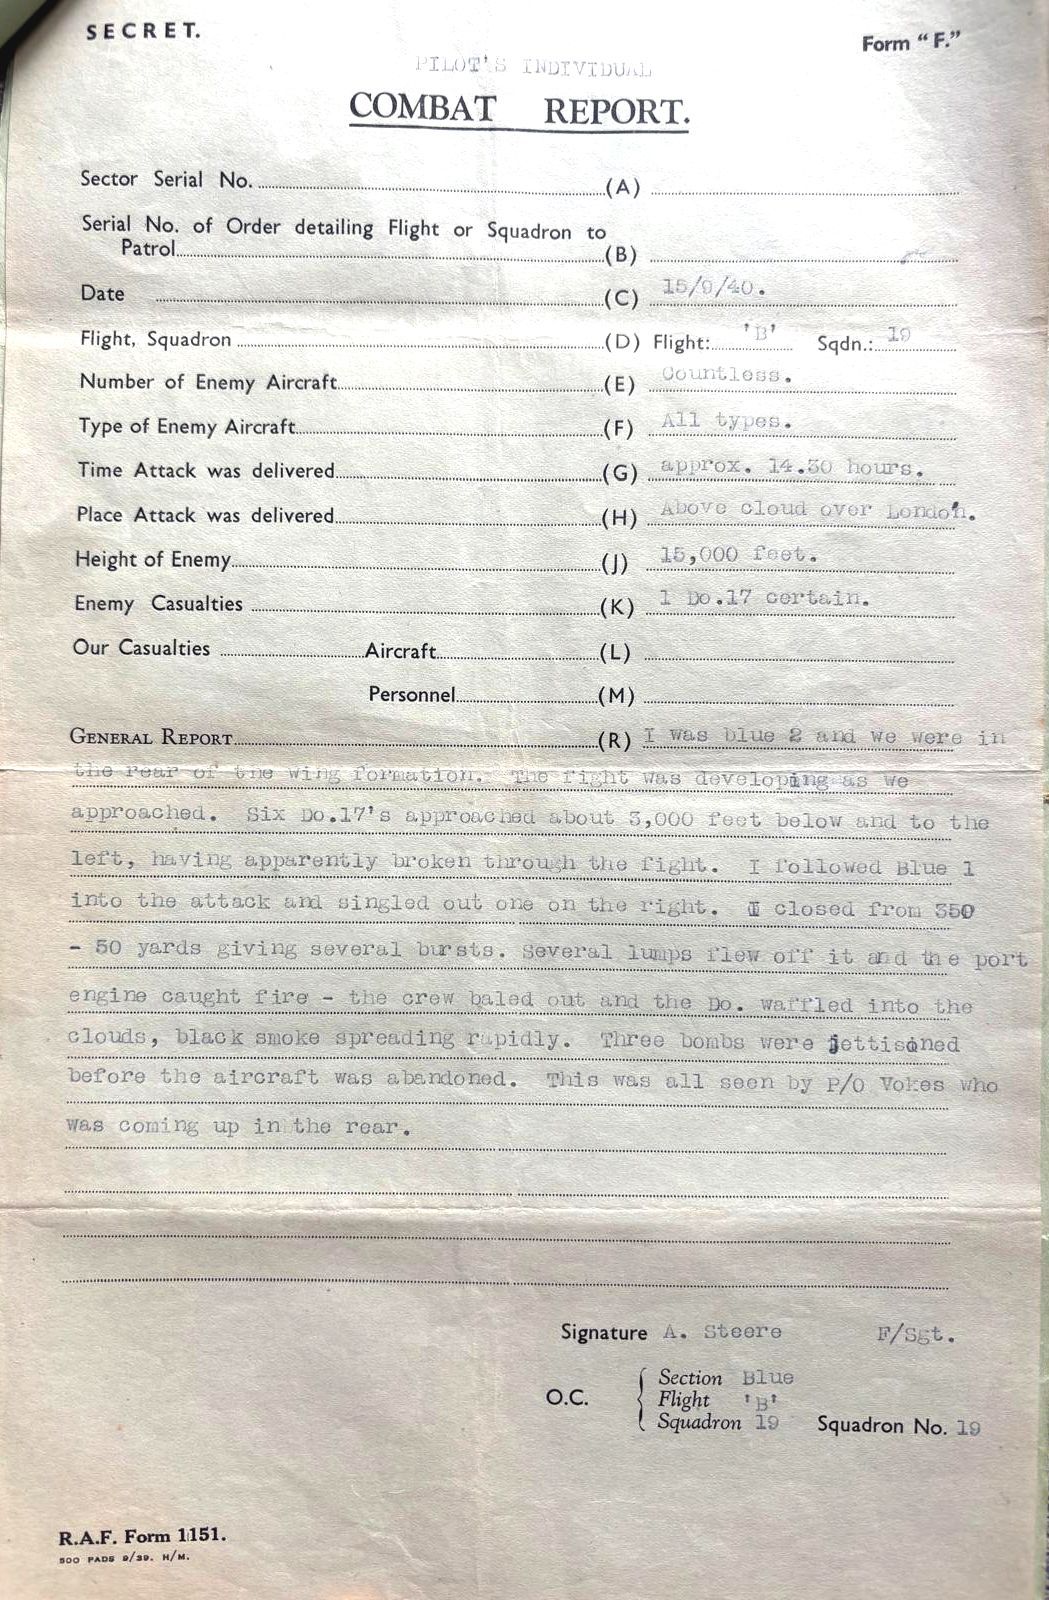 SECRET.
Form "F."
PILOT'S INDIVIDUAL
COMBAT REPORT.
Sector Serial No. (A)
Serial No. of Order detailing Flight or Squadron to
Patrol (B)
Date (C) 15/9/40.
Flight, Squadron (D) Flight: 'B' Sqdn.: 19
Number of Enemy Aircraft (E) Countless.
Type of Enemy Aircraft (F) All types.
Time Attack was delivered (G) approx. 14.30 hours.
Place Attack was delivered (H) Above cloud over London.
Height of Enemy (J) 15,000 feet.
Enemy Casualties (K) 1 Do.17 certain.
Our Casualties Aircraft (L)
Personnel (M)
GENERAL REPORT (R) I was blue 2 and we were in
the rear of the wing formation. The fight was developing as we
approached. Six Do.17's approached about 3,000 feet below and to the
left, having apparently broken through the fight. I followed Blue 1
into the attack and singled out one on the right. I closed from 350
- 50 yards giving several bursts. Several lumps flew off it and the port
engine caught fire - the crew baled out and the Do. waffled into the
clouds, black smoke spreading rapidly. Three bombs were jettisoned
before the aircraft was abandoned. This was all seen by P/O Vokes who
was coming up in the rear.
Signature A. Steere F/Sgt.
O.C. Section Blue
Flight 'B'
Squadron 19 Squadron No. 19
R.A.F. Form 1151.
500 PADS 9/39. H/M.